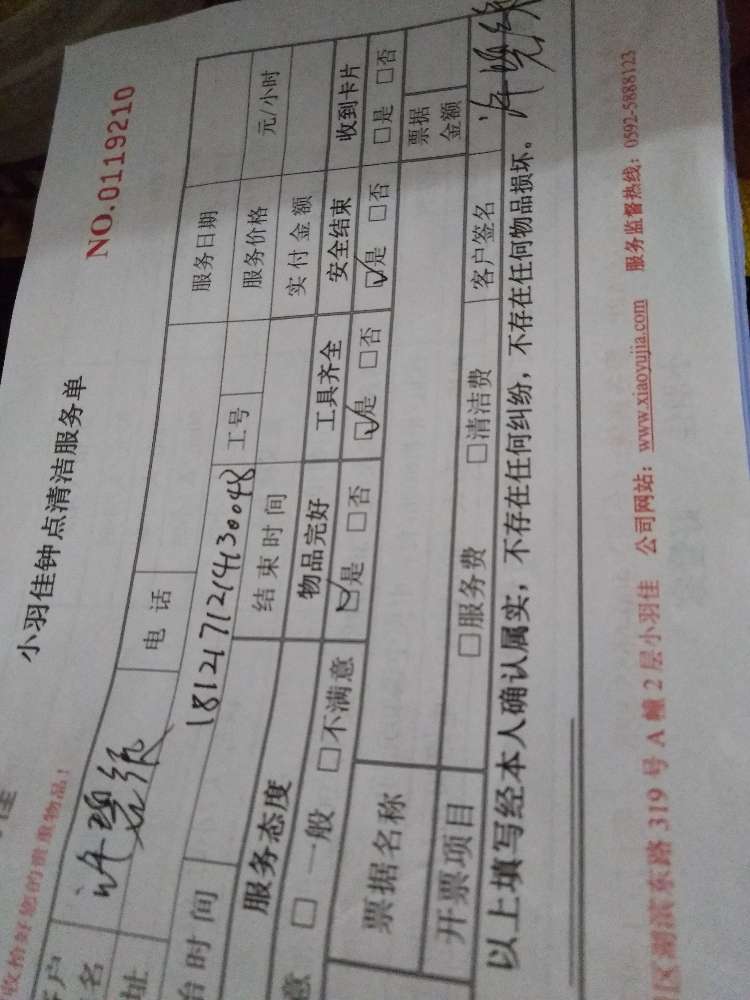 收拾好您的贵重物品！
小羽佳钟点清洁服务单
NO.0119210
户
名 许碧 电话
址 服务日期
时间 1812171214130048 工号 服务价格 元/小时
结束时间 实付金额
服务态度 物品完好 工具齐全 安全结束 收到卡片
意 □一般 □不满意 ☑是 □否 ☑是 □否 ☑是 □否 □是 □否
票据名称 票据金额
开票项目 □服务费 □清洁费 客户签名 许
以上填写经本人确认属实，不存在任何纠纷，不存在任何物品损坏。
区湖滨东路 319 号 A 幢 2 层小羽佳 公司网站：www.xiaoyujia.com 服务监督热线：0592-5888123